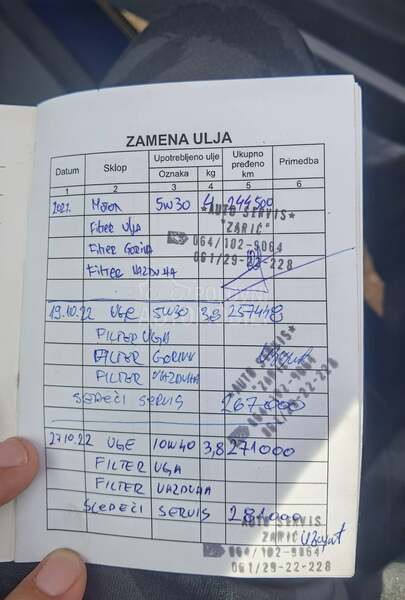 ZAMENA ULJA
Datum Sklop Upotrebljeno ulje Ukupno pređeno km Primedba
Oznaka kg
1 2 3 4 5 6
2021. Motor 5W30 4 244500
Filter ulja
Filter Goriva
Filter vazduha
AUTO SERVIS
"ZARIĆ"
064/102-9064
061/29-22-228
19.10.22 UGE 5W30 3,8 257448
FILTER UGA
FILTER GORIVA
FILTER VAZDUHA
SLEDEĆI SERVIS 267000
AUTO SERVIS
27.10.22 UGE 10W40 3,8 271000
FILTER UGA
FILTER VAZDUHA
SLEDEĆI SERVIS 281000
AUTO SERVIS
ZARIĆ
064/102-9064
061/29-22-228